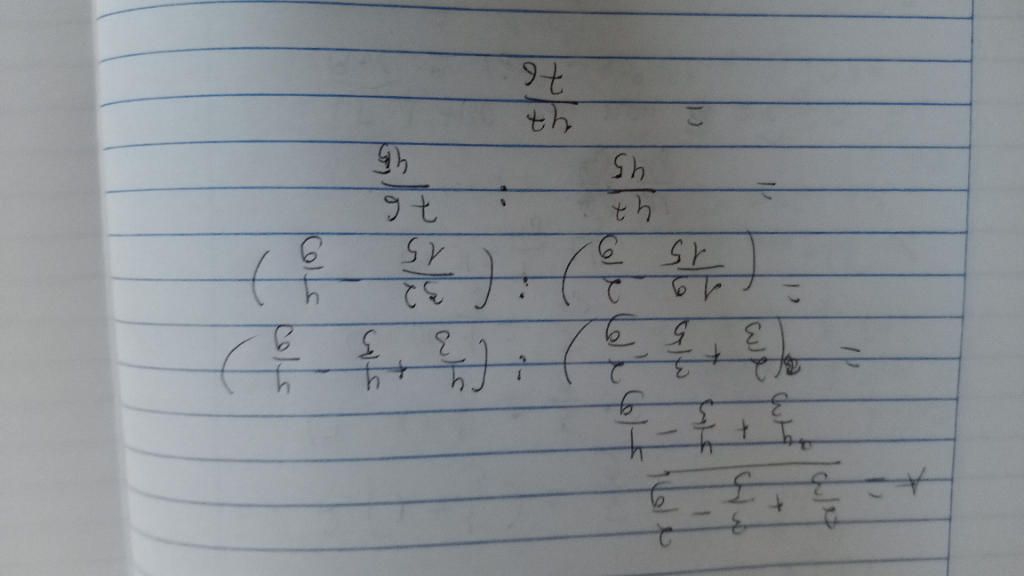 A = \frac{\frac{2}{3} + \frac{3}{5} - \frac{2}{9}}{\frac{4}{3} + \frac{4}{5} - \frac{4}{9}}
= (\frac{2}{3} + \frac{3}{5} - \frac{2}{9}) : (\frac{4}{3} + \frac{4}{5} - \frac{4}{9})
= (\frac{19}{15} - \frac{2}{9}) : (\frac{32}{15} - \frac{4}{9})
= \frac{47}{45} : \frac{76}{45}
= \frac{47}{76}